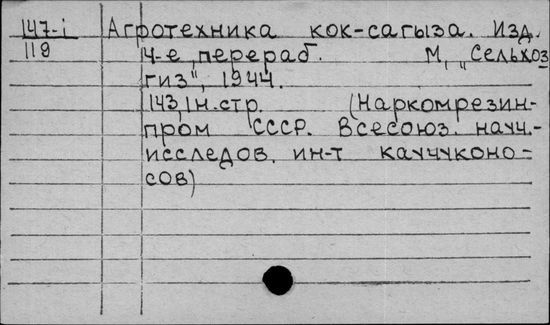 147-i Агротехника кок-сагыза. Изд.
119 4-е, перераб. М, „Сельхоз
гиз", 1944.
143,1н.стр. (Наркомрезин-
пром СССР. Всесоюз. науч.-
исследов. ин-т каучуконо-
сов)